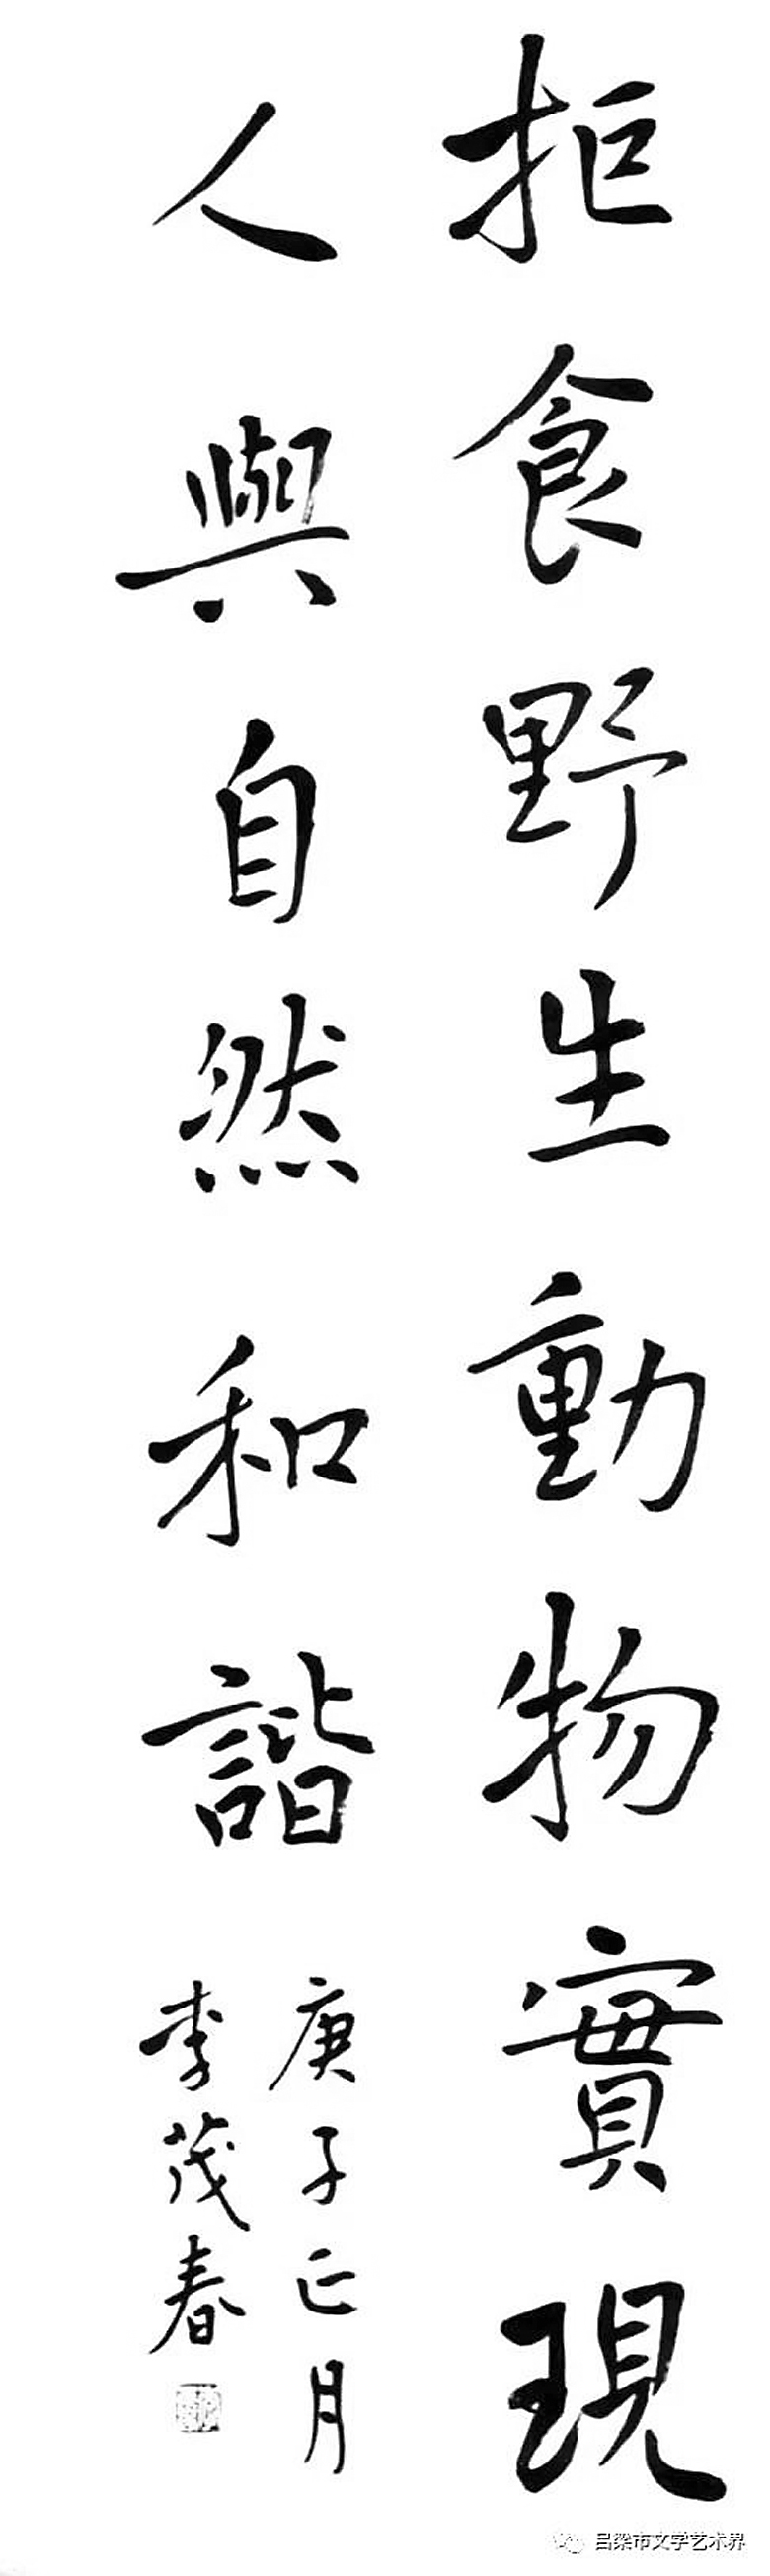 拒食野生動物實現
人與自然和諧
庚子正月
李茂春
吕梁市文学艺术界